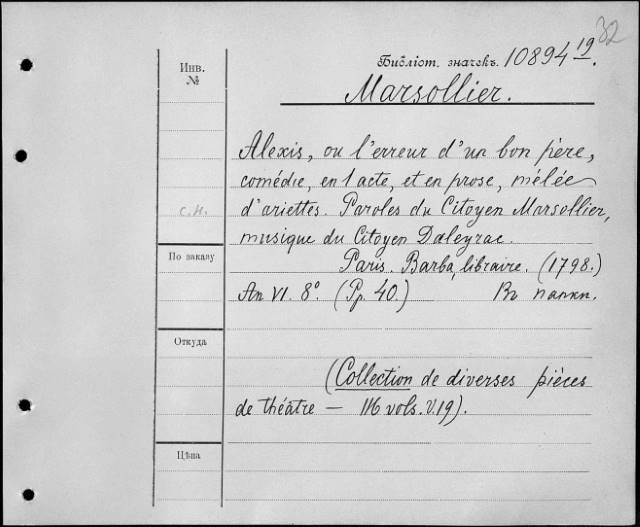 32
Библіот. значекъ. 10894 19.
Инв.
№
Marsollier.
Alexis, ou l'erreur d'un bon père,
comédie, en 1 acte, et en prose, mêlée
с.н.
d'ariettes. Paroles du Citoyen Marsollier,
musique du Citoyen Daleyrac.
По заказу
Paris. Barba, libraire. (1798.)
An VI. 8°. (Pp. 40.) Въ папки.
Откуда
(Collection de diverses pièces
de théâtre — 116 vols. V. 19).
Цѣна